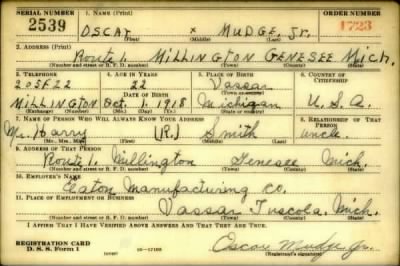 SERIAL NUMBER 1. NAME (Print) ORDER NUMBER
2539 OSCAR x MUDGE, Jr. 1723
(First) (Middle) (Last)
2. ADDRESS (Print)
Route 1. MILLINGTON GENESEE Mich.
(Number and street or R. F. D. number) (Town) (County) (State)
3. TELEPHONE 4. AGE IN YEARS 5. PLACE OF BIRTH 6. COUNTRY OF CITIZENSHIP
205F22 22 Vassar
DATE OF BIRTH (Town or county)
MILLINGTON Oct. 1. 1918 Michigan U.S.A.
(Exchange) (Number) (Mo.) (Day) (Yr.) (State or country)
7. NAME OF PERSON WHO WILL ALWAYS KNOW YOUR ADDRESS 8. RELATIONSHIP OF THAT PERSON
Mr. Harry (R.) Smith uncle.
(Mr., Mrs., Miss) (First) (Middle) (Last)
9. ADDRESS OF THAT PERSON
Route 1. Millington Genesee Mich.
(Number and street or R. F. D. number) (Town) (County) (State)
10. EMPLOYER'S NAME
Eaton Manufacturing Co.
11. PLACE OF EMPLOYMENT OR BUSINESS
Vassar Tuscola. Mich.
(Number and street or R. F. D. number) (Town) (County) (State)
I AFFIRM THAT I HAVE VERIFIED ABOVE ANSWERS AND THAT THEY ARE TRUE.
REGISTRATION CARD
D. S. S. Form 1 16—17105 Oscar Mudge Jr.
(Registrant's signature)